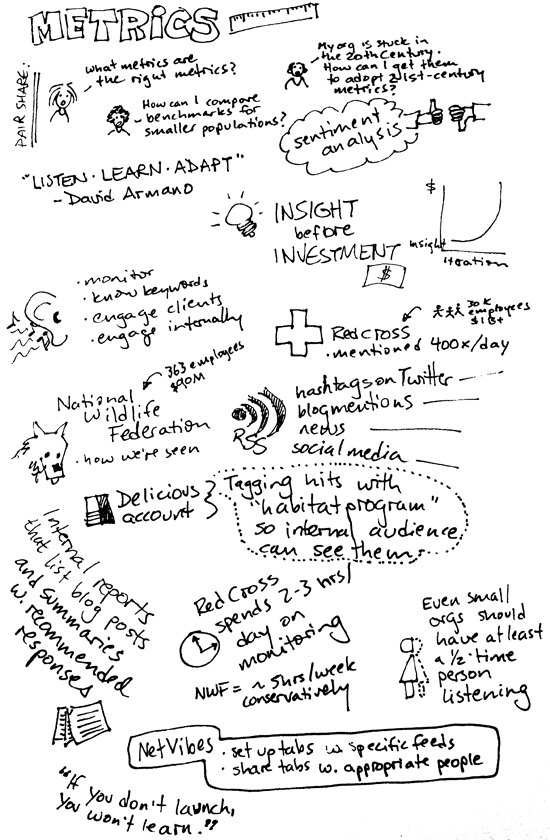 METRICS
PAIR SHARE:
what metrics are
the right metrics?
My org is stuck in
the 20th Century.
How can I get them
to adopt 21st-century
metrics?
How can I compare
benchmarks for
smaller populations?
sentiment
analysis
"LISTEN · LEARN · ADAPT"
- David Armano
INSIGHT
before
INVESTMENT
$
$
insight
iteration
· monitor
· know keywords
· engage clients
· engage internally
Red Cross
· mentioned 400x/day
30K
employees
$1B+
363 employees
$90M
National
Wildlife
Federation
· how we're seen
RSS
hashtags on Twitter
blog mentions
news
social media
Delicious
account
Tagging hits with
"habitat program"
so internal audience
can see them.
Internal reports
that list blog posts
and summaries
w. recommended
responses
Red Cross
spends 2-3 hrs/
day on
monitoring
NWF = ~5hrs/week
conservatively
Even small
orgs should
have at least
a 1/2-time
person
listening
NetVibes
· set up tabs w. specific feeds
· share tabs w. appropriate people
"If you don't launch,
you won't learn."